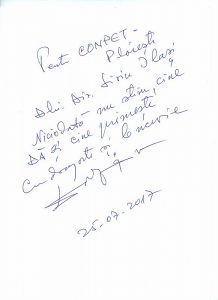 Pentr CONPET -
Ploiești
Dlui Dir. Liviu Ilași
Niciodată nu știm, cine
DĂ și cine primește
Cu dragoste și bucurie
25.07.2017